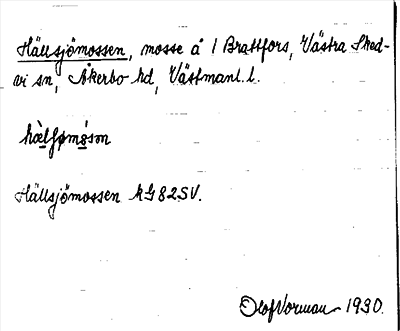 Hällsjömossen, mosse å 1 Brattfors, Västra Sked-
vi sn, Åkerbo hd, Västmanl. l.
Hällsjömossen kG 82SV.
Olof Vorman 1930.